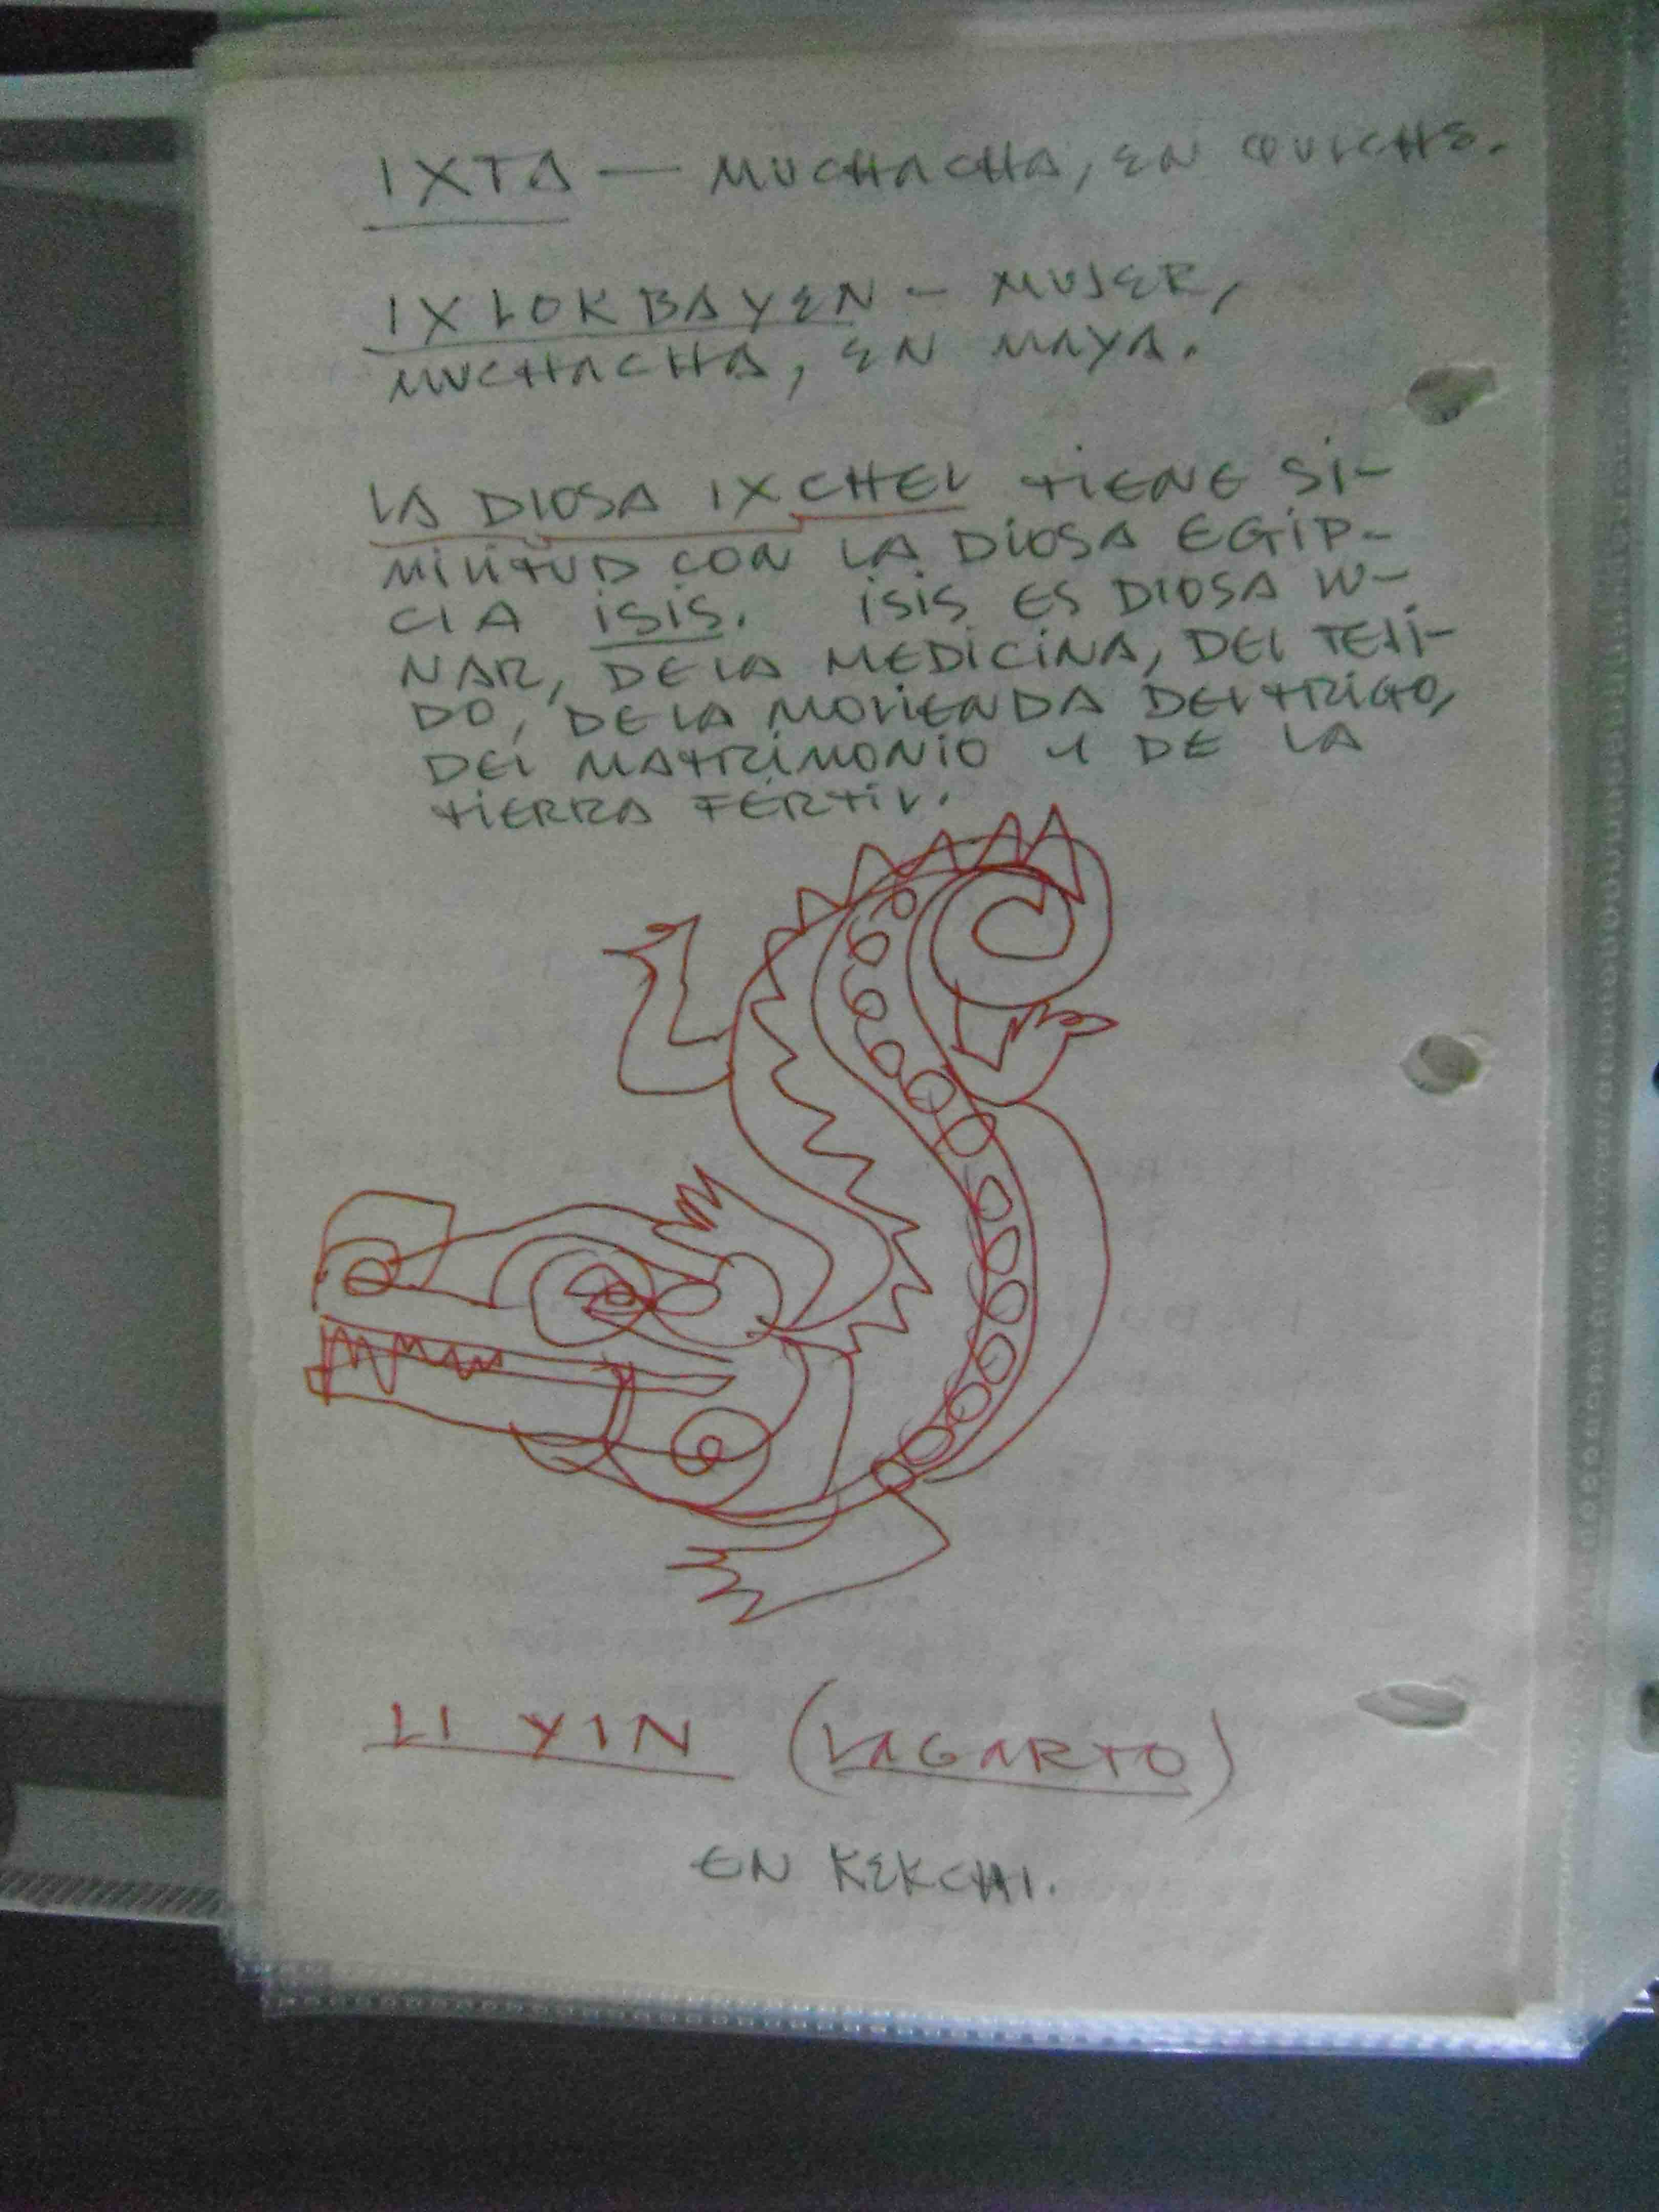 IXTA — MUCHACHA, EN QUICHE.
IXLOK BAYEN — MUJER,
MUCHACHA, EN MAYA.
LA DIOSA IXCHEL TIENE SI-
MILITUD CON LA DIOSA EGIP-
CIA ISIS. ISIS ES DIOSA LU-
NAR, DE LA MEDICINA, DEL TEJI-
DO, DE LA MOLIENDA DEL TRIGO,
DEL MATRIMONIO Y DE LA
TIERRA FÉRTIL.
LI YIN (LAGARTO)
EN KEKCHI.